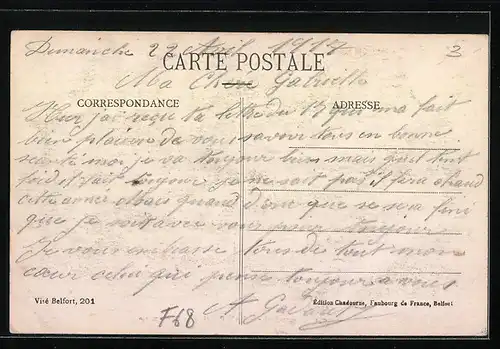 Dimanche 22 Avril 1917
3
CARTE POSTALE
Ma Chere Gabrielle
CORRESPONDANCE
ADRESSE
Hier j'ai reçu ta lettre du 17 qui ma fait
bien plaisire de vous savoir tous en bonne
santé moi je va toujour bien mais quel
froid il fait toujour je ne sait pas il fera chaud
cette année Mais quand que se sera fini
que je soit avec vous pour toujour
Je vous embrasse tous de tout mon
cœur celui qui pense toujour a vous
Vité Belfort, 201
Édition Chadourne, Faubourg de France, Belfort
F68
A